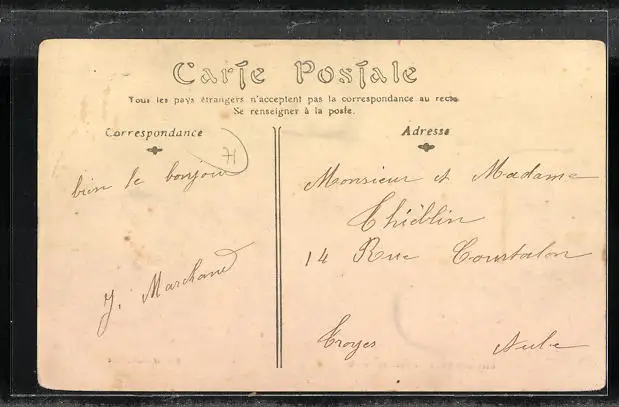 Carte Postale
Tous les pays étrangers n'acceptent pas la correspondance au recto
Se renseigner à la poste.
Correspondance
71
bien le bonjour
J. Marchand
Adresse
Monsieur et Madame
Thiéblin
14 Rue Courtalon
Troyes Aube